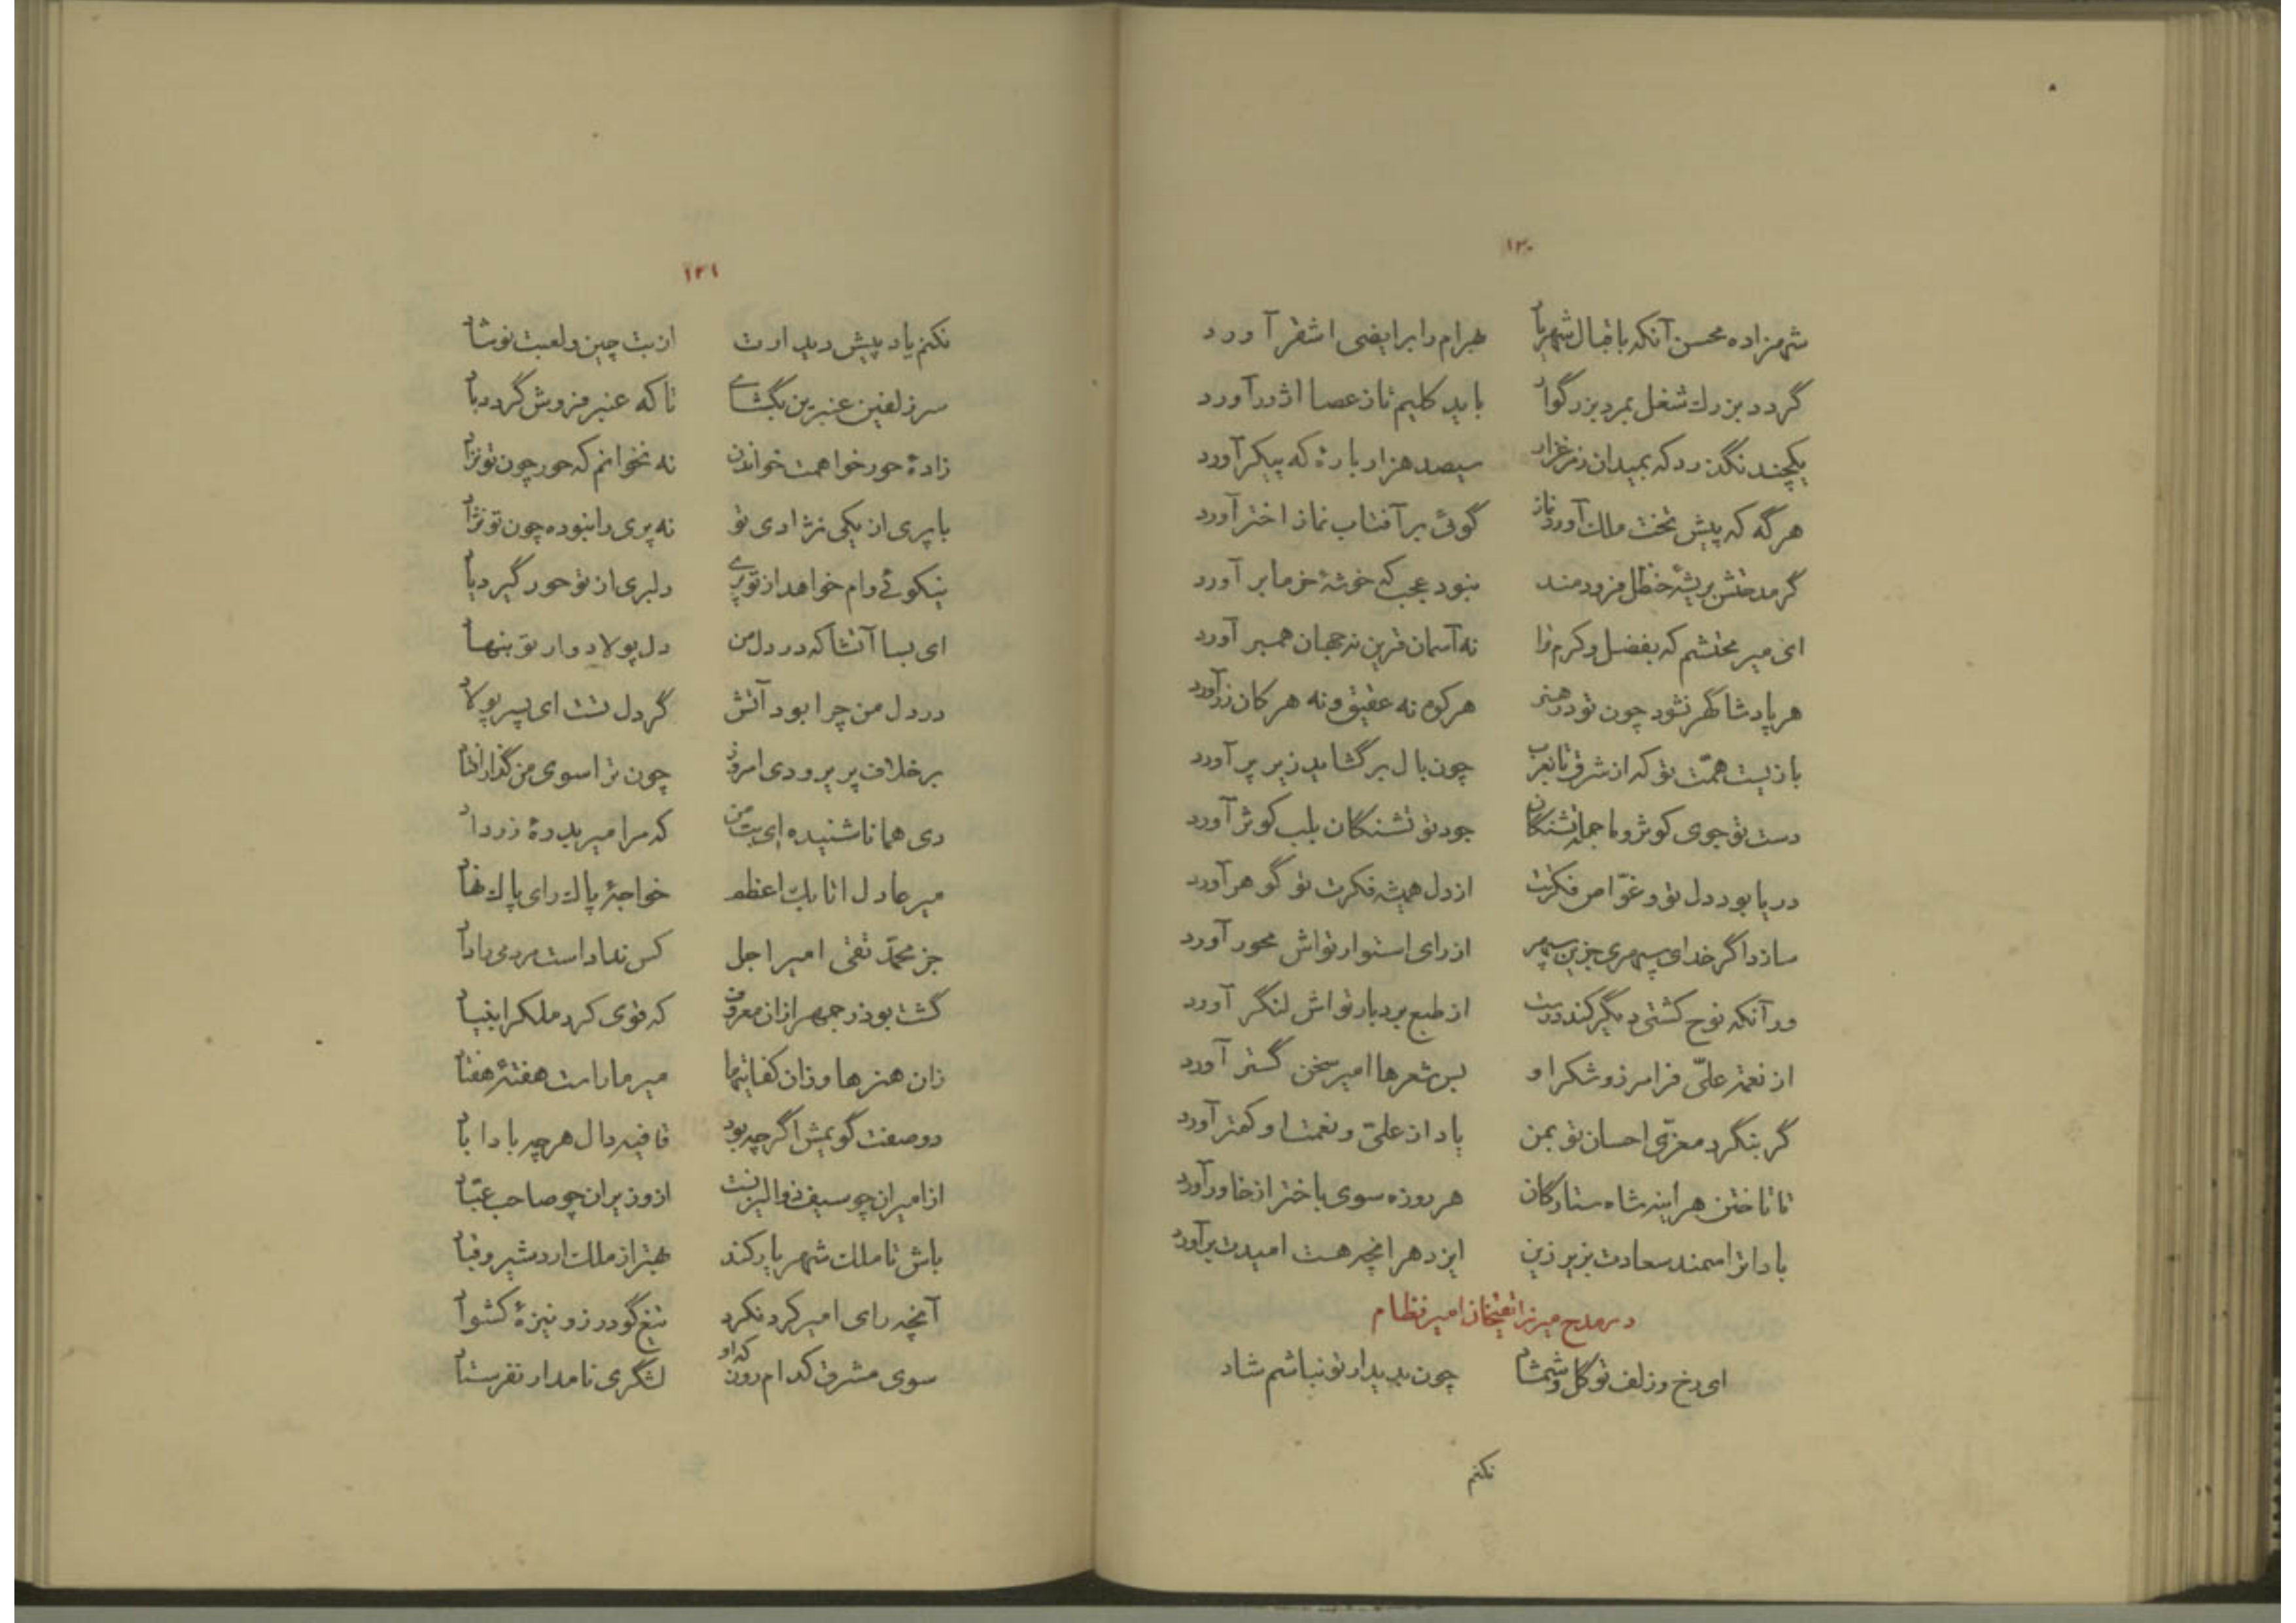 ۱۳۰
شهزاده محسن آنکه باقبال شهریار بهرام را بر ابیض اشقر آورد
گردد بزرك شغل بمرد بزرگوار باید کلیم تا ز عصا اژدر آورد
یکچند نگذرد که بمیدان ز مرغزار سیصد هزار باره که پیکر آورد
هر گه که پیش تخت ملك آورد نماز گوئی بر آفتاب نماز اختر آورد
گر مدحتش بریشهٔ حنظل فرو دمند نبود عجب که خوشهٔ خرما بر آورد
ای میر محتشم که بفضل و کرم ترا نه آسمان قرین نه جهان همسر آورد
هر پادشا گهر نشود چون تو در هنر هر کوه نه عقیق و نه هر کان زر آورد
بازیست همّت تو که از شرق تا بغرب چون بال بر گشاید زیر پر آورد
دست تو جوی کوثر و ما جمله تشنگان جود تو تشنگان بلب کوثر آورد
دریا بود دل تو و غوّاص فکرتت از دل همیشه فکرت تو گوهر آورد
سازد اگر خدای سپهری جزین سپهر از رای استوار تواش محور آورد
ور آنکه نوح کشتی دیگر کند درست از طبع بردبار تواش لنگر آورد
از نعمت علیّ فرامرز و شکر او بس شعرها امیر سخن گستر آورد
گر بنگرد معزّی احسان تو بمن یاد از علیّ و نعمت او کمتر آورد
تا تاختن هر آینه شاه ستارگان هر روزه سوی باختر از خاور آورد
بادا ترا سمند سعادت بزیر زین ایزد هر انچه هست امیدت بر آورد
در مدح میرزا تقیخان امیر نظام
ای رخ و زلف تو گل و شمشاد چون بدیدار تو نباشم شاد
نکنم
۱۳۱
نکنم یاد پیش دیدارت از بت چین و لعبت نوشاد
سر زلفین عنبرین بگشای تا که عنبر فروش گردد باد
زادهٔ حور خواهمت خواندن نه نخوانم که حور چون تو نزاد
با پری از یکی نژادی تو نه پری را نبوده چون تو نژاد
نیکوئی وام خواهد از تو پری دلبری از تو حور گیرد یاد
ای بسا آتشا که در دل من دل پولادوار تو بنهاد
در دل من چرا بود آتش گر دل تست ای پسر پولاد
بر خلاف پریر و دی امروز چون ترا سوی من گذار افتاد
دی همانا شنیده ای بت من که مرا میر بدرهٔ زر داد
میر عادل اتابك اعظم خواجهٔ پاك رای پاك نهاد
جز محمّد تقی امیر اجل کس نداداست مردمی را داد
گشت بوذرجمهر ازان معروف که قوی کرد ملك را بنیاد
زان هنرها و زان کفایتها میر ما راست هفتهٔ هفتاد
دو صفت گویمش اگر چه بود قافیه دال هر چه بادا باد
از امیران چو سیف ذو الیزنست از وزیران چو صاحب عبّاد
باش تا ملك شهریار کند بهتر از ملك اردشیر و قباد
آنچه رای امیر کرد نکرد تیغ گودرز و نیزهٔ کشواد
سوی مشرق کدام روز که او لشگری نامدار نفرستاد